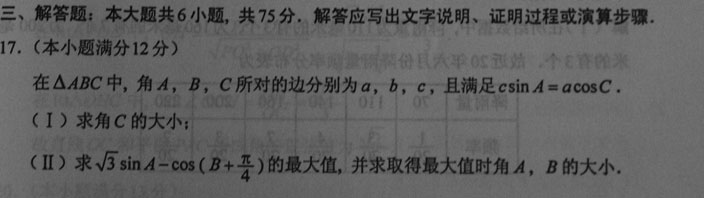 三、解答题：本大题共6小题，共75分．解答应写出文字说明、证明过程或演算步骤．
17.（本小题满分12分）
在△ABC中，角A，B，C所对的边分别为a，b，c，且满足csinA=acosC．
（Ⅰ）求角C的大小；
（Ⅱ）求√3sinA-cos(B+π/4)的最大值，并求取得最大值时角A，B的大小．